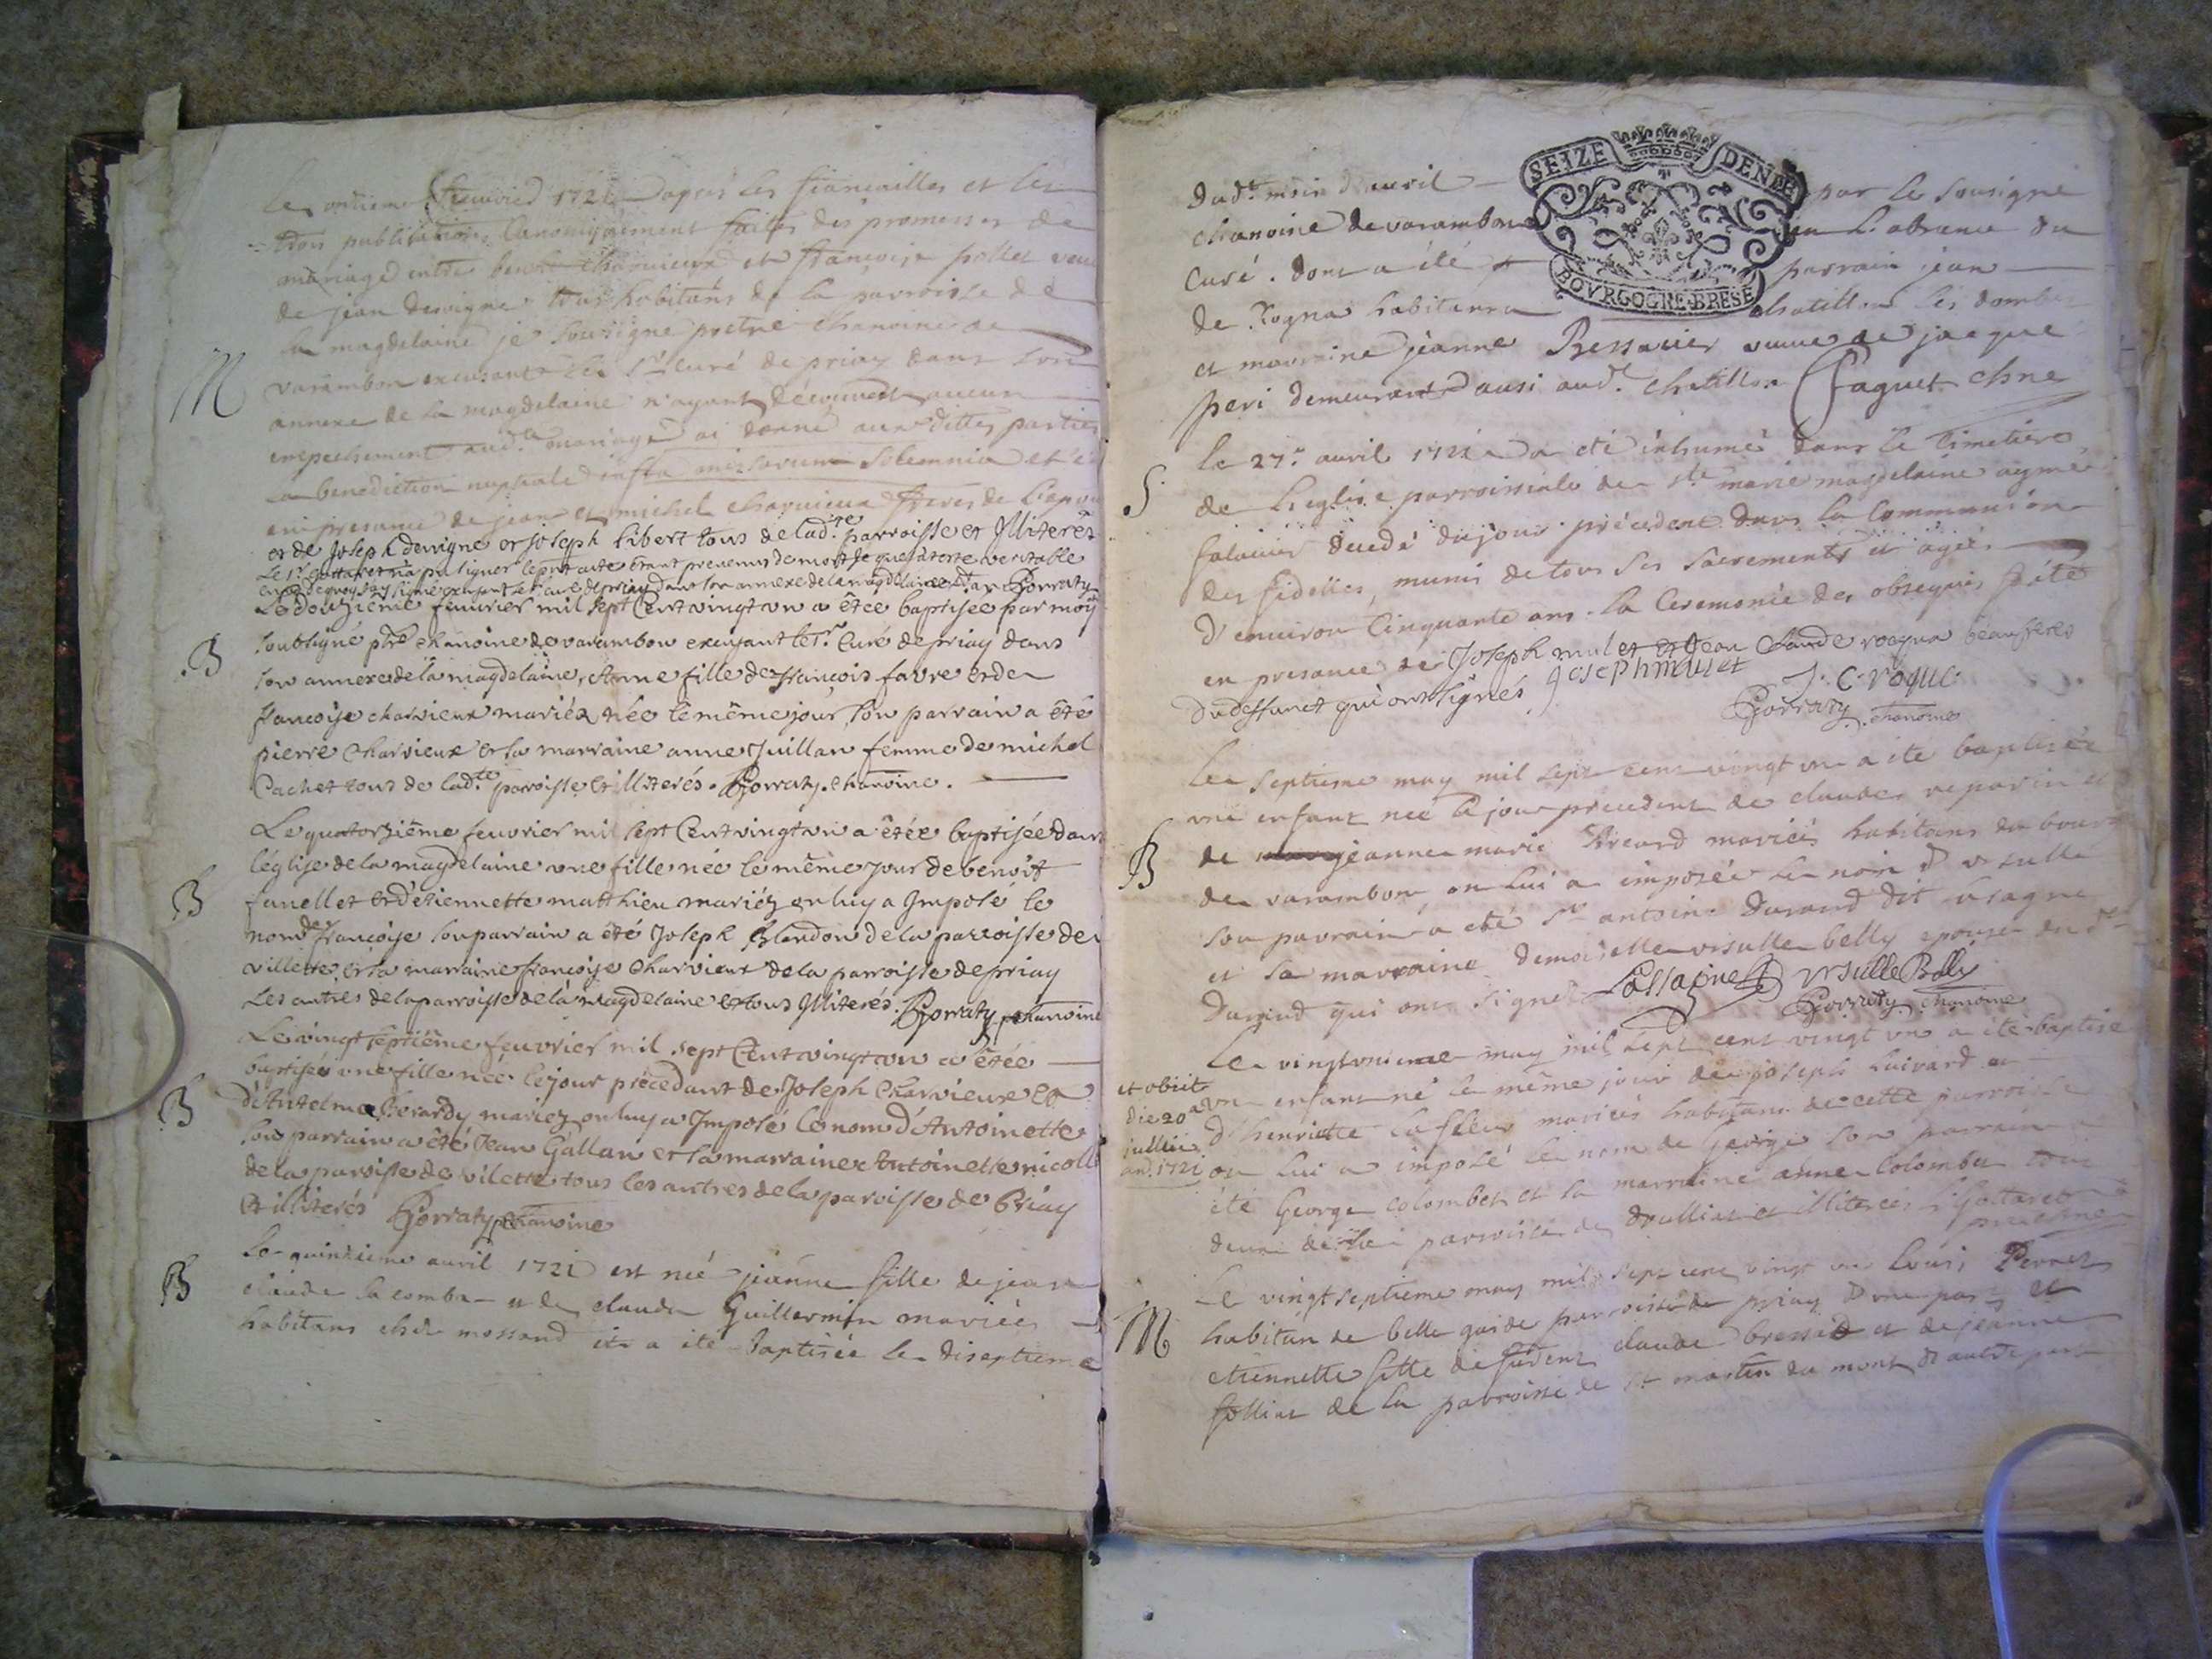 Le onzieme feuvrier 1721 apres les fiançailles et les
trois publications canoniquement faites des promesses de
mariage entre benoit charvieux et françoise pollet veuve
de jean devigne tous habitans de la parroisse de
la magdelaine je soussigne pretre chanoine de
M
varambon excusant le Sr curé de priay dans son
annexe de la magdelaine n'ayant decouvert aucun
empechement audt mariage ai donné aux dittes parties
la benediction nuptiale infra missarum solemnia et ce
en presance de jean et michel charvieux freres de l'epoux
et de Joseph devigne et joseph libert tous de ladte parroisse et Illiterés
Le Sr gottaret n'a pu signer le pnt acte étant prevenu de mort je que j'ateste veritable
en foy de quoy j'ay signé excusant le Sr curé de priay dans son annexe de la magdelaine Borraty
Le douzième feuvrier mil sept Cent vingt un a êtée baptisée par moy
B
soubsigné ptre chanoine de varambon excusant le Sr Curé de priay dans
son annexe de la magdelaine, Anne fille de françois favre et de
françoise charvieux mariés née le même jour, son parrain a êté
pierre charvieux et sa marraine anne Juillan femme de michel
Cachet tous de ladte parroisse et illiterés. Borraty chanoine.
Le quatorzième feuvrier mil sept Cent vingt un a êtée baptisée dans
l'église de la magdelaine une fille née le même jour de benoît
B
fanellet et d'etiennette matthieu mariéz on luy a Imposé le
nom de françoise son parrain a êté Joseph blandon de la parroisse de
villette et sa marraine françoise charvieux de la parroisse de priay
Les autres de la parroisse de la magdelaine et tous Illiterés. Borraty chanoine
Le vingt septième feuvrier mil sept Cent vingt un a êtée
baptisée une fille née le jour précedant de Joseph Charvieux et
B
d'Antelma Berardy mariez on luy a Imposé le nom d'Antoinette
son parrain a êté Jean Gallan et sa marraine Antoinette nicolle
de la paroisse de vilette tous les autres de la paroisse de Priay
et illiterés Borraty chanoine
Le quinzieme avril 1721 est née jeanne fille de jean
B
claude la combe et de claude Guillermin mariées
habitans chés mossand et a été baptisée le diseptieme
SEIZE DENIE
BOVRGOGNE BRESE
dudt mois d'avril par le sousigné
chanoine de varambon en l'absence du
curé. dont a été parrain jean
de Rogna habitant a chatillon les dombes
et marraine jeanne Bessarier veuve de jacque
peri demeurant ausi audt chatillon Faguet chne
S.
le 27e avril 1721 a eté inhumé dans le cimetiere
de l'eglise parroissiale de ste marie magdelaine aymé
falavier décedé du jour précedent dans la communion
des fidelles, munis de tous ses sacrements et agée
d'environ cinquante ans. la ceremonie des obseques faite
en presance de Joseph mulet et Jean claude roagna beaufreres
du deffunct qui ont signés Joseph mulet J. C. roque
Borraty chanoine
Le septieme may mil sept cent vingt un a ete baptisée
une enfant née le jour precedent de claude reparin et
B
de jeanne marie Arcard mariées habitans du bourg
de varambon, on lui a imposée le nom d'ursulle
son parrain a eté sr antoine Durand dit lasagne
et sa marraine demoiselle ursulle belly epouse dudt
Durand qui ont signés Lassagne ursulle Belly
Borraty chanoine
Le vingtunieme may mil sept cent vingt un a été baptisé
et obiit
die 20a
jullii
an. 1721
un enfant né le même jour de joseph luivard et
d'henriette lafleur mariés habitans de cette parroisse
on lui a imposé le nom de George son parrain a
été George colomber et sa marraine anne colomber tous
deux de la parroisse de druillat et illiterées Gottaret
pretre
Le vingt septieme may mil sept cent vingt un Louis Perret
M
habitan de belle garde parroisse de priay d'une part et
etiennette fille de fudent claude bressad et de jeanne
follint de la parroisse de st martin du mont d'autre part